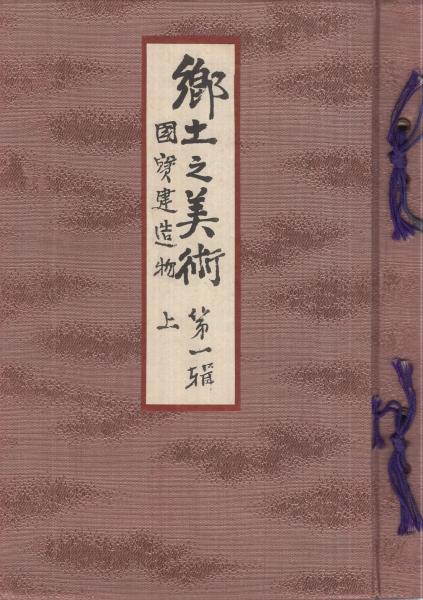 鄉土之美術 第一輯
國寶建造物 上